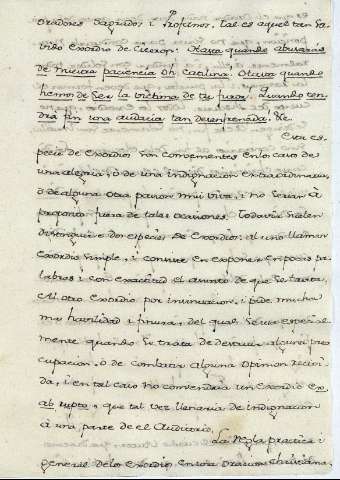 oradores Sagrados i Profanos, tal es aquel tan sa-
bido Exordio de Ciceron: Hasta quando abusaras
de nuestra paciencia Oh Catilina. Hasta quando
hemos de ser la victima de tu furor. Quando ten-
drá fin una audacia tan desenfrenada. &c.
Esta es-
pecie de Exordios son convenientes en lo caso de
una alegria, ó de una indignacion extraordinaria,
ó de alguna otra pasion mui viva, i no serian á
proposito fuera de tales ocasiones. Todavia suelen
distinguirse dos especies de Exordios: al uno llaman
Exordio simple, i consiste en exponer en pocas pa-
labras i con exactitud el asunto de que se trata.
Al otro Exordio por insinuacion, i pide mucha
mas habilidad i finura, del qual se usa especial-
mente quando se trata de destruir alguna preo-
cupacion, ó de combatir alguna opinion recibi-
da, i en tal caso no convendria un Exordio ex
abrupto, que tal vez llenaria de indignacion
á una parte de el Auditorio.
La Regla practica i
general de los Exordios en una Oracion Christiana,